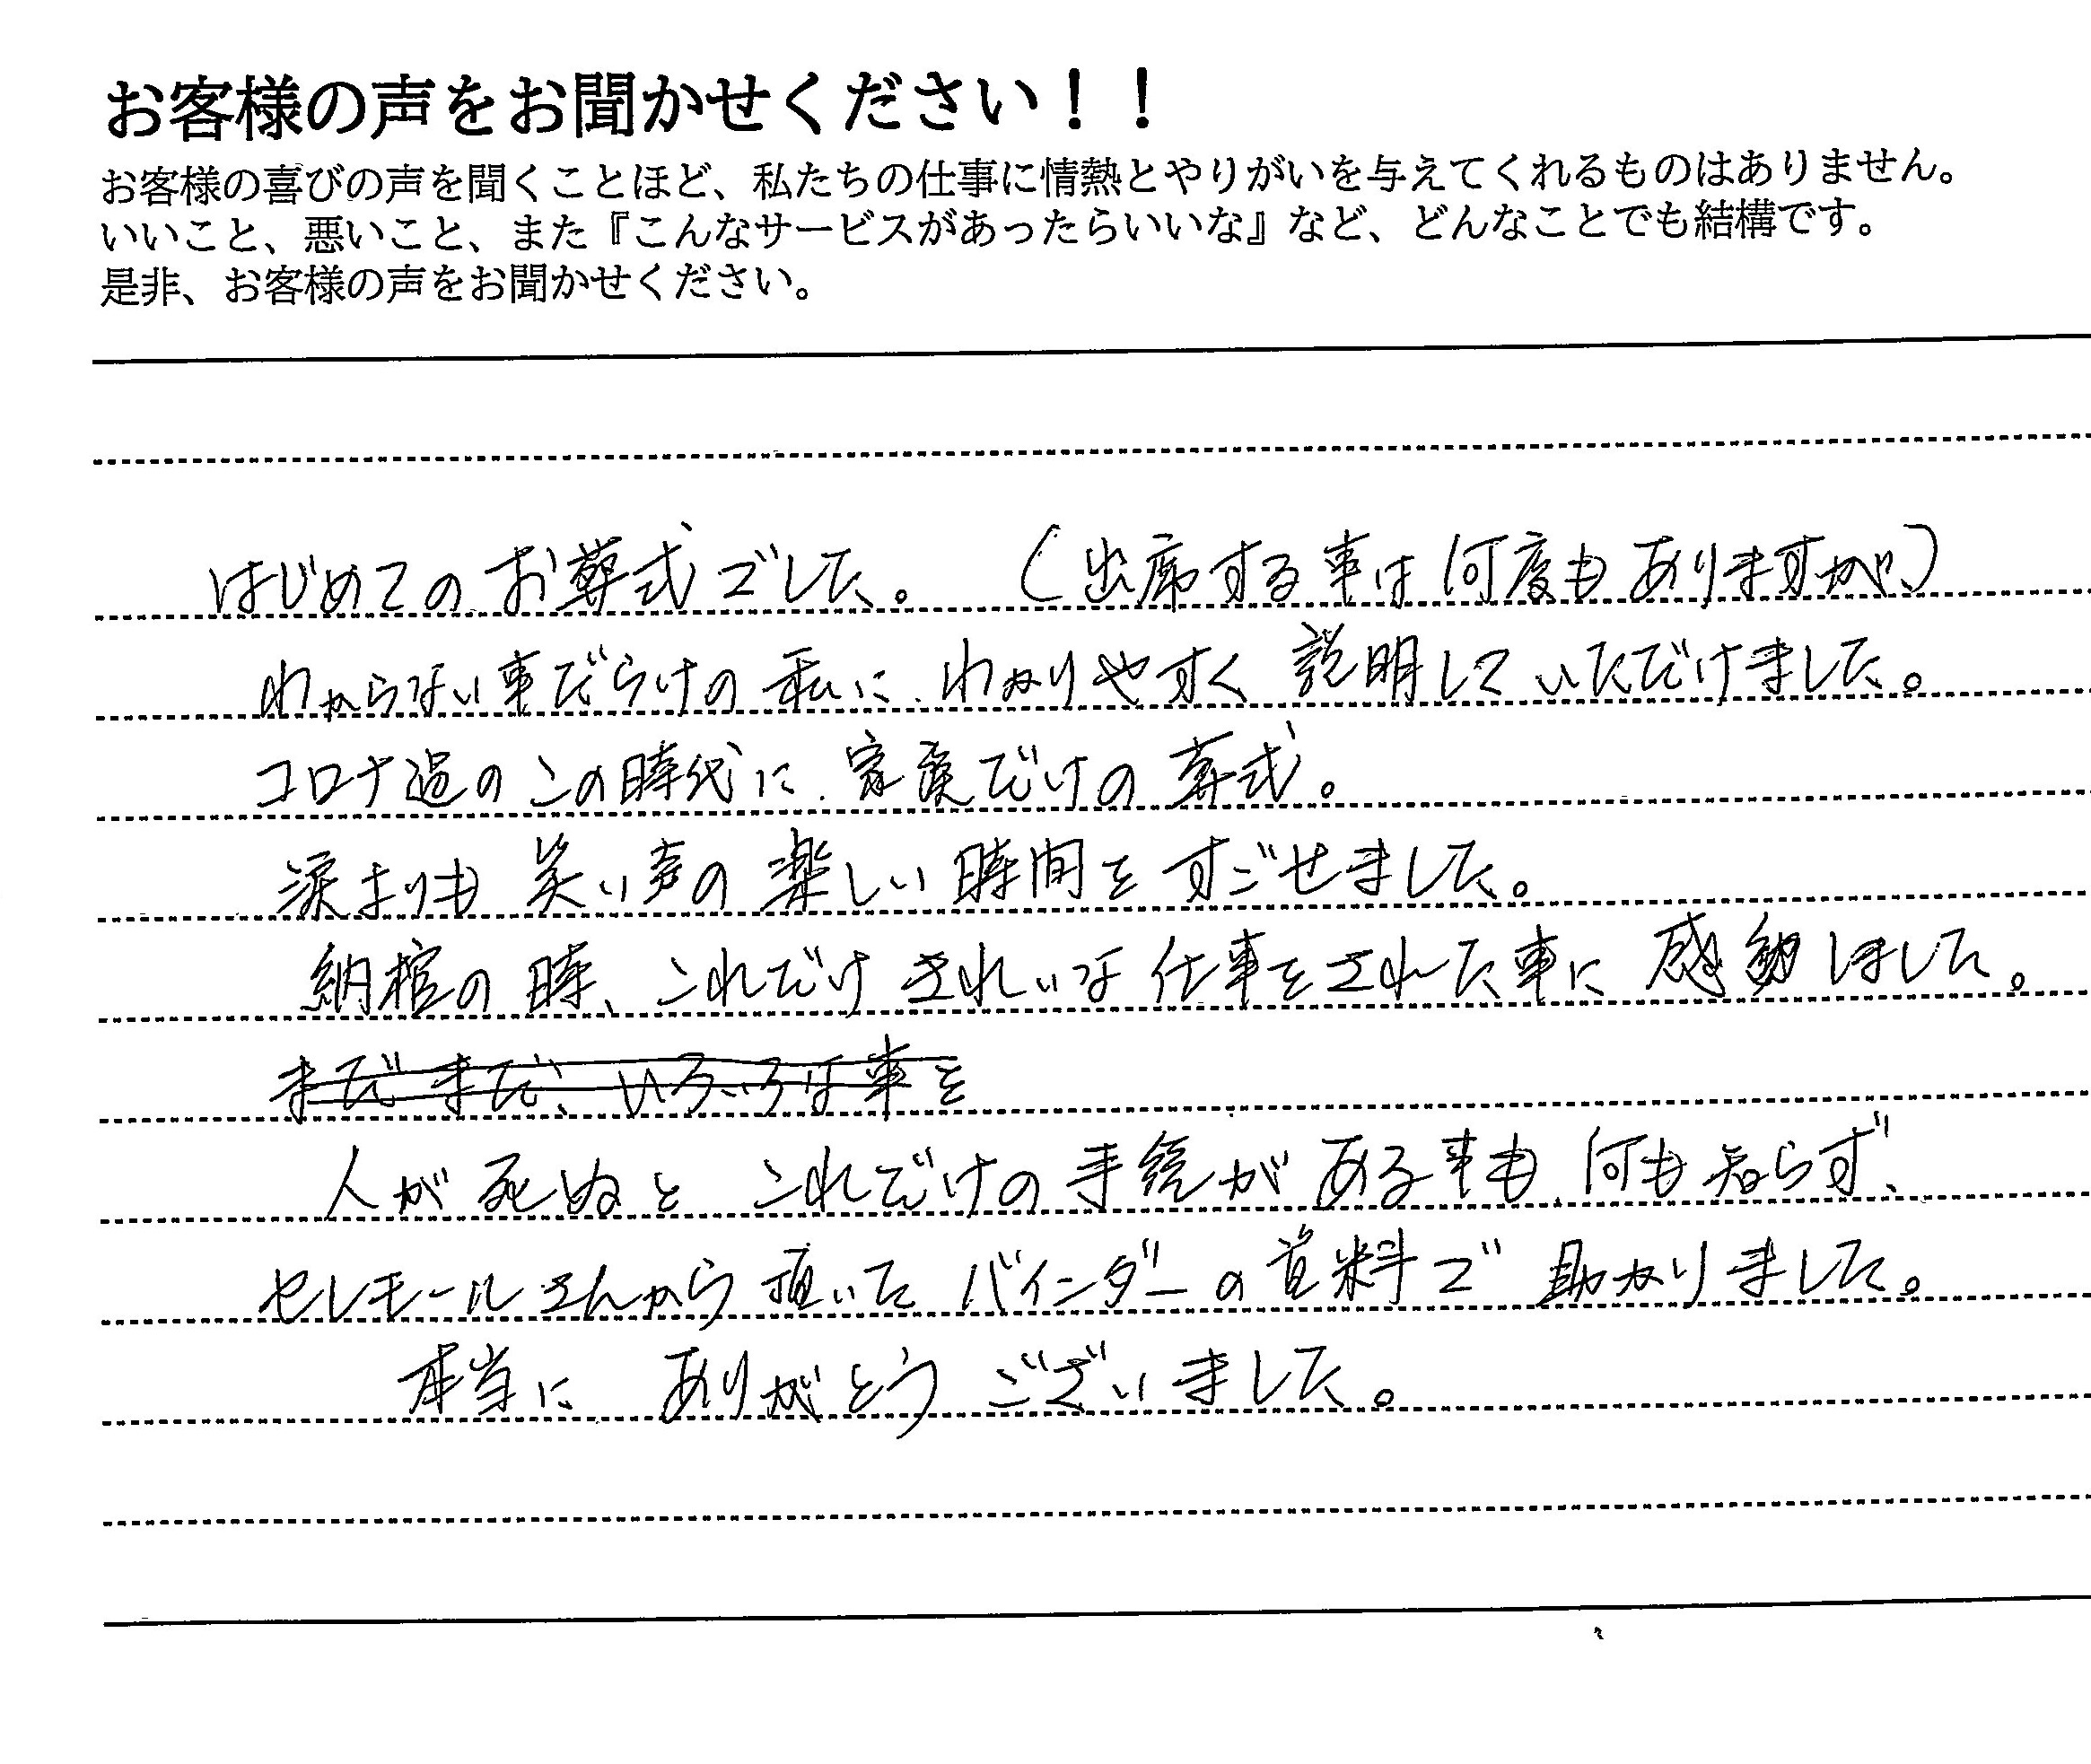 お客様の声をお聞かせください！！
お客様の喜びの声を聞くことほど、私たちの仕事に情熱とやりがいを与えてくれるものはありません。
いいこと、悪いこと、また『こんなサービスがあったらいいな』など、どんなことでも結構です。
是非、お客様の声をお聞かせください。
はじめてのお葬式でした。（出席する事は何度もありますが）
わからない事だらけの私に、わかりやすく説明していただけました。
コロナ過のこの時代に、家族だけの葬式。
涙よりも笑い声の楽しい時間をすごせました。
納棺の時、これだけきれいな仕事をされた事に感動しました。
まだまだ、いろいろな事を
人が死ぬとこれだけの手続がある事も、何も知らず、
セレモールさんから頂いたバインダーの資料で助かりました。
本当にありがとうございました。